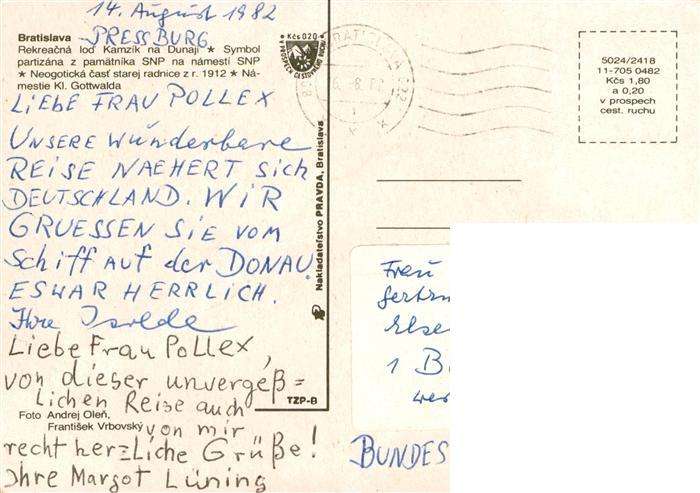 14. August 1982
PRESSBURG
Bratislava
Rekreačná loď Kamzík na Dunaji ★ Symbol
partizána z pamätníka SNP na námestí SNP
★ Neogotická časť starej radnice z r. 1912 ★ Ná-
mestie Kl. Gottwalda
LIEBE FRAU POLLEX
UNSERE wunderbare
REISE NAEHERT sich
DEUTSCHLAND. WIR
GRUESSEN SIE VOM
Schiff AUF der DONAU.
ES WAR HERRLICH.
Ihre Isolde
Liebe Frau Pollex,
von dieser unvergeß=
lichen Reise auch
von mir
recht herzliche Grüße!
Ihre Margot Lüning
Foto Andrej Oleň,
František Vrbovský
TZP-B
Nakladateľstvo PRAVDA, Bratislava
Kčs 0,20
BRATISLAVA
5024/2418
11-705 0482
Kčs 1,80
a 0,20
v prospech
cest. ruchu
Frau
1 B
BUNDES